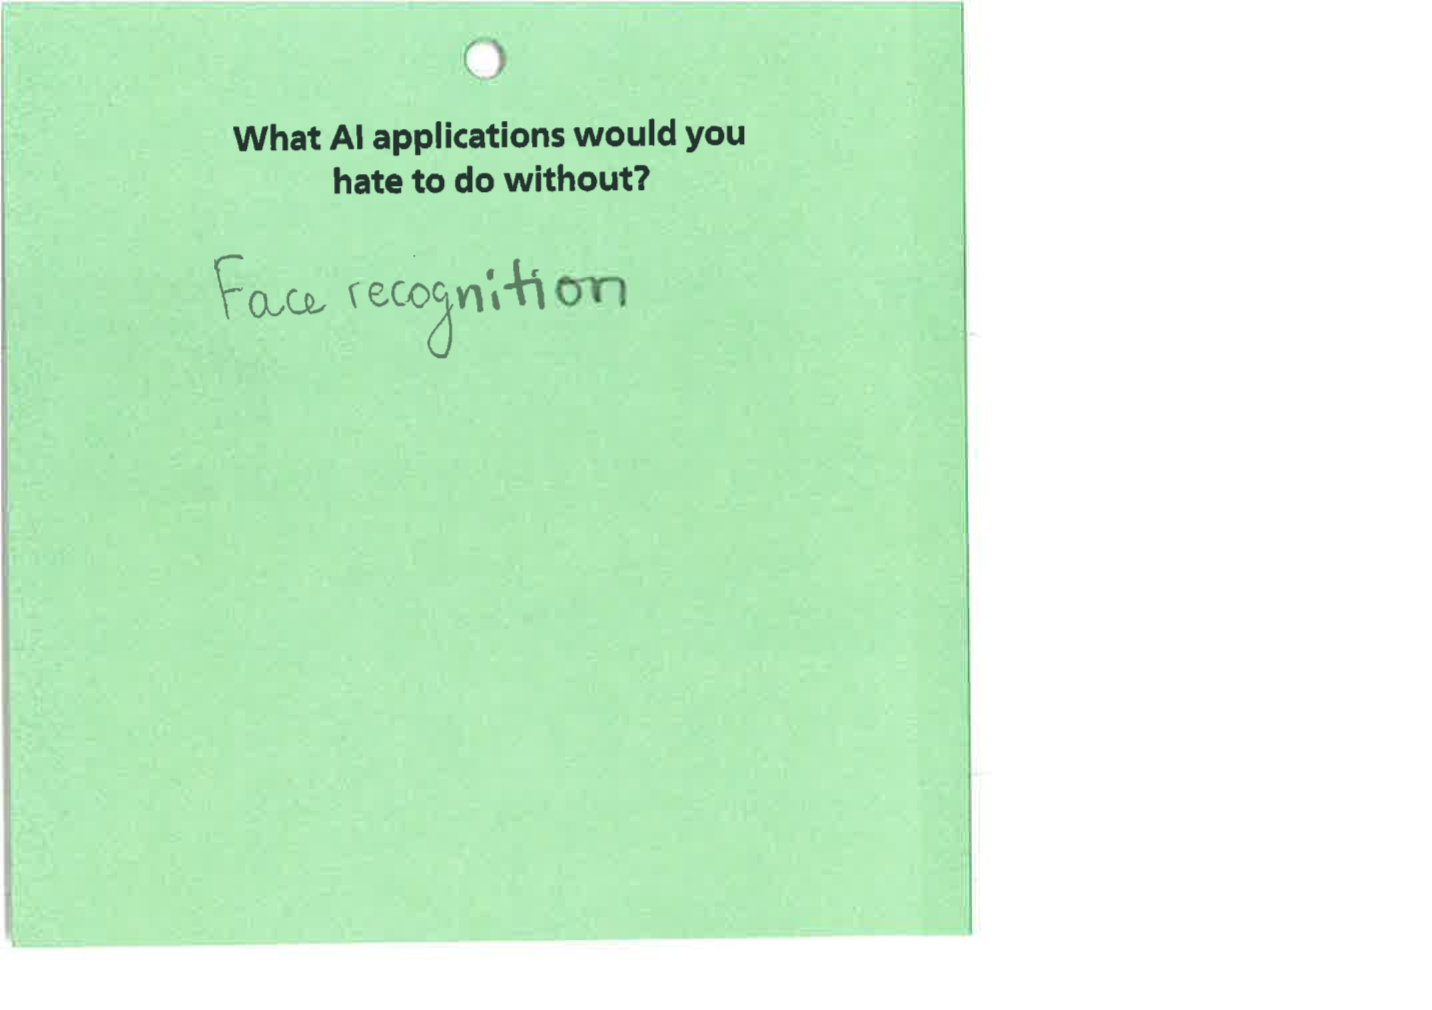 What AI applications would you
hate to do without?
Face recognition